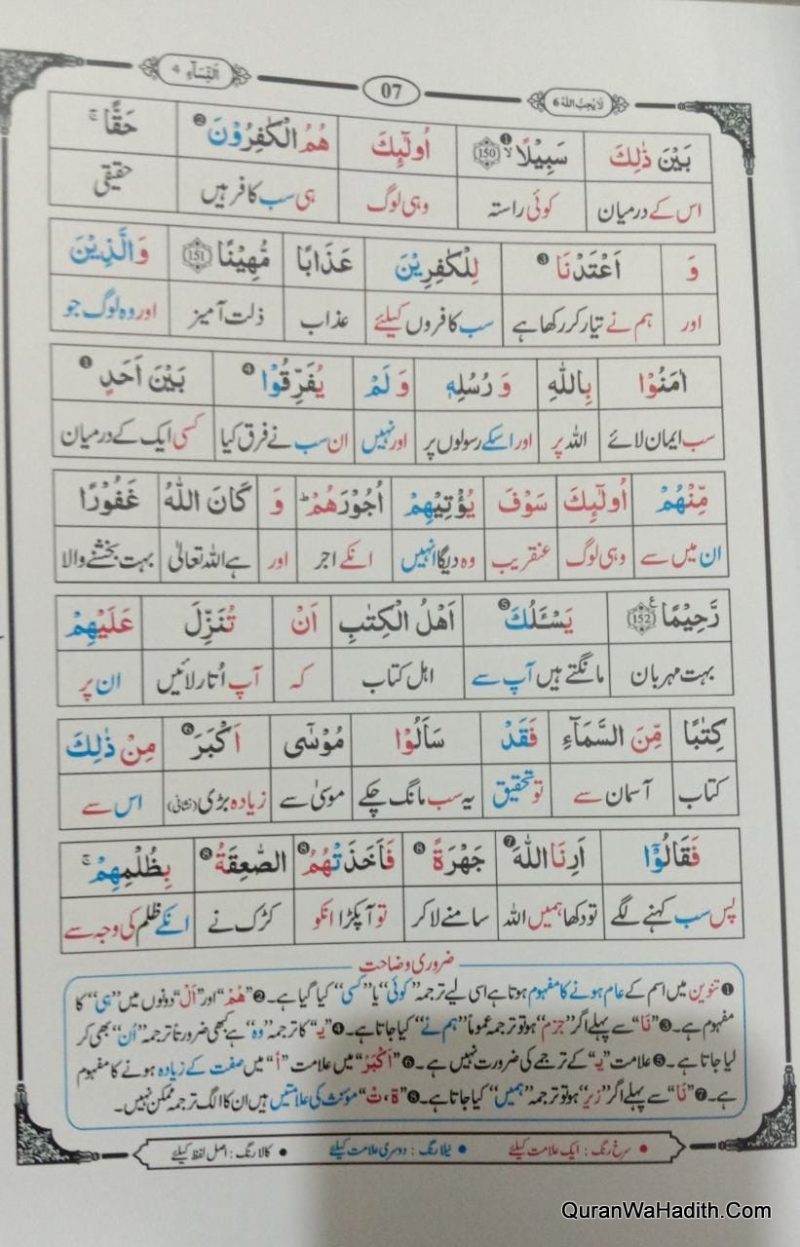 لَا يُحِبُّ اللهُ 6
07
اَلنِّسَآءِ 4
بَيْنَ ذٰلِكَ سَبِيْلًا ❶ ۙ 150 اُولٰٓئِكَ هُمُ الْكٰفِرُوْنَ ❷ حَقًّا ۚ
اس کے درمیان کوئی راستہ وہی لوگ ہی سب کافر ہیں حقیقی
وَ اَعْتَدْنَا ❸ لِلْكٰفِرِيْنَ عَذَابًا مُّهِيْنًا 151 وَالَّذِيْنَ
اور ہم نے تیار کر رکھا ہے سب کافروں کیلئے عذاب ذلت آمیز اور وہ لوگ جو
اٰمَنُوْا بِاللّٰهِ وَ رُسُلِهٖ وَ لَمْ يُفَرِّقُوْا ❹ بَيْنَ اَحَدٍ ❶
سب ایمان لائے اللہ پر اور اسکے رسولوں پر اور نہیں ان سب نے فرق کیا کسی ایک کے درمیان
مِّنْهُمْ اُولٰٓئِكَ سَوْفَ يُؤْتِيْهِمْ اُجُوْرَهُمْ ؕ وَ كَانَ اللّٰهُ غَفُوْرًا
ان میں سے وہی لوگ عنقریب وہ دیگا انہیں انکے اجر اور ہے اللہ تعالیٰ بہت بخشنے والا
رَّحِيْمًا 152 ع يَسْـَٔلُكَ ❺ اَهْلُ الْكِتٰبِ اَنْ تُنَزِّلَ عَلَيْهِمْ
بہت مہربان مانگتے ہیں آپ سے اہل کتاب کہ آپ اُتار لائیں ان پر
كِتٰبًا مِّنَ السَّمَآءِ فَقَدْ سَاَلُوْا مُوْسٰٓى اَكْبَرَ ❻ مِنْ ذٰلِكَ
کتاب آسمان سے تو تحقیق یہ سب مانگ چکے موسیٰ سے زیادہ بڑی (نشانی) اس سے
فَقَالُوْٓا اَرِنَا اللّٰهَ ❼ جَهْرَةً ❽ فَاَخَذَتْهُمُ ❽ الصّٰعِقَةُ ❽ بِظُلْمِهِمْ ۚ
پس سب کہنے لگے تو دکھا ہمیں اللہ سامنے لا کر تو آپکڑا انکو کڑک نے انکے ظلم کی وجہ سے
ضروری وضاحت
❶ تنوین میں اسم کے عام ہونے کا مفہوم ہوتا ہے اسی لیے ترجمہ ”کوئی“ یا ”کسی“ کیا گیا ہے۔ ❷ ”هُمْ“ اور ”اَلْ“ دونوں میں ”ہی“ کا
مفہوم ہے۔ ❸ ”نَا“ سے پہلے اگر ”جزم“ ہو تو ترجمہ عموماً ”ہم نے“ کیا جاتا ہے۔ ❹ ”يـ“ کا ترجمہ ”وہ“ ہے کبھی ضرورتاً ترجمہ ”اُن“ بھی کر
لیا جاتا ہے۔ ❺ علامت ”يـ“ کے ترجمے کی ضرورت نہیں ہے۔ ❻ ”اَكْبَرَ“ میں علامت ”اَ“ میں صفت کے زیادہ ہونے کا مفہوم
ہے۔ ❼ ”نَا“ سے پہلے اگر ”زیر“ ہو تو ترجمہ ”ہمیں“ کیا جاتا ہے۔ ❽ ”ة، تْ“ مؤنث کی علامتیں ہیں ان کا الگ ترجمہ ممکن نہیں۔
● سرخ رنگ: ایک علامت کیلئے ● نیلا رنگ: دوسری علامت کیلئے ● کالا رنگ: اصل لفظ کیلئے
QuranWaHadith.Com